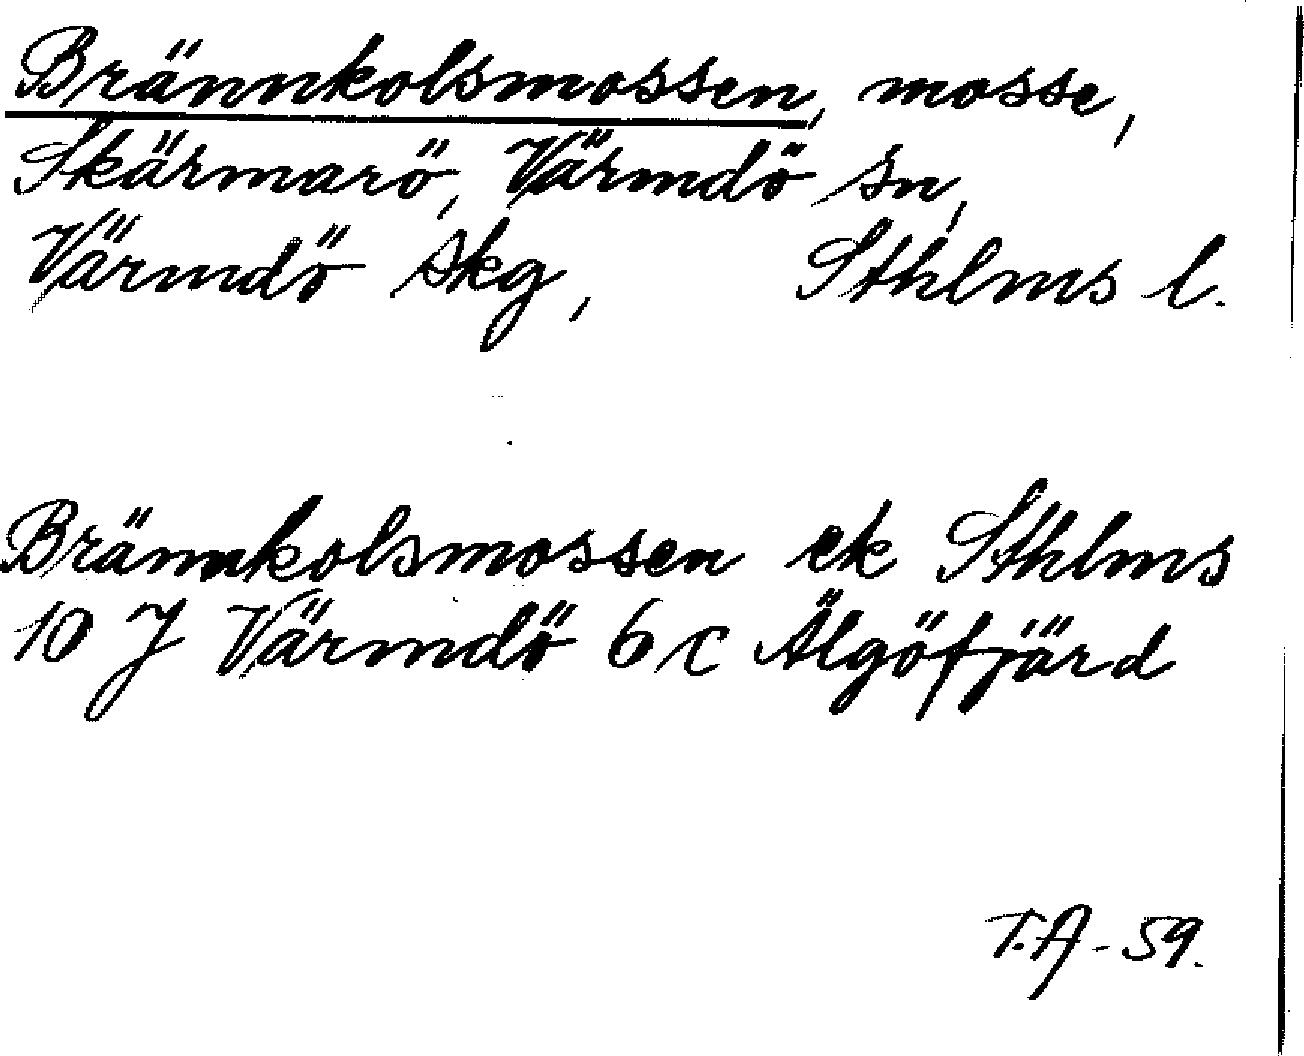 Brännkolsmossen, mosse,
Skärmarö, Värmdö sn,
Värmdö skg, Sthlms l.
Brännkolsmossen ek Sthlms
10 J Värmdö 6 c Älgöfjärd
T.A - 59.